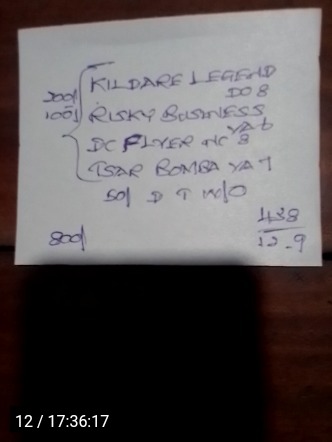 KILDARE LEGEND
DO 8
200/
RISKY BUSINESS
100/
YA 6
DC FLYER NC 8
TSAR BOMBA YA 7
50/ D T W/O
438
800/
12-9
12 / 17:36:17